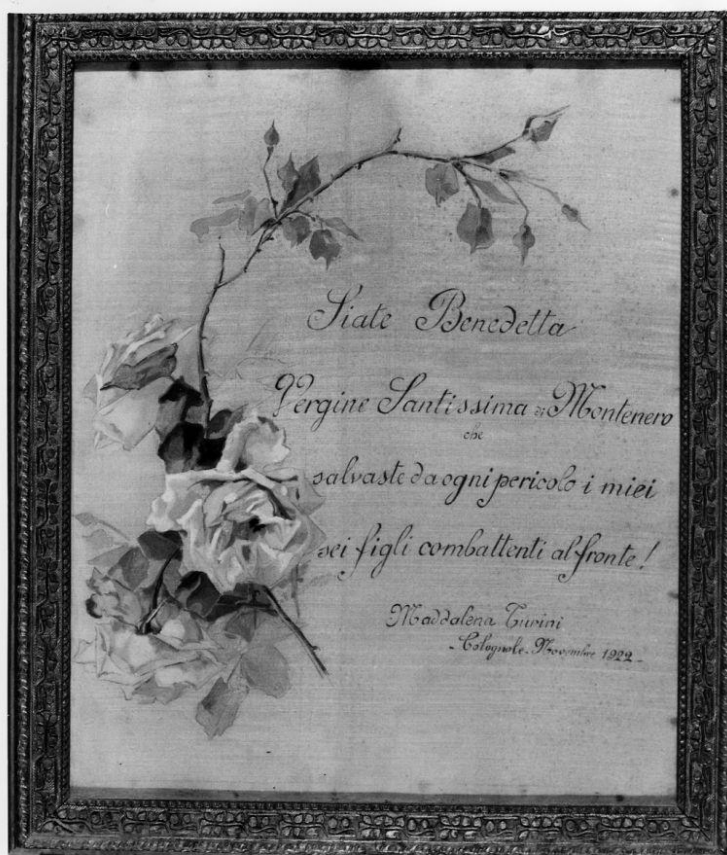 Siate Benedetta
Vergine Santissima di Montenero
che
salvaste da ogni pericolo i miei
sei figli combattenti al fronte!
Maddalena Turini
Colognole. Novembre 1922.